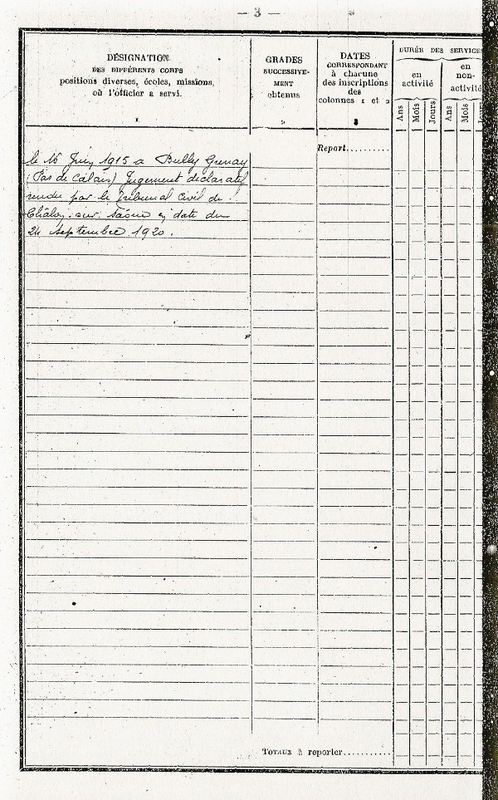 — 3 —
DÉSIGNATION
DES DIFFÉRENTS CORPS
positions diverses, écoles, missions,
où l'officier a servi.
1
GRADES
SUCCESSIVE-
MENT
obtenus
2
DATES
CORRESPONDANT
à chacune
des inscriptions
des
colonnes 1 et 2
3
DURÉE DES SERVICES
en
activité
en
non-
activité
Ans
Mois
Jours
Ans
Mois
Report..........
le 16 Juin 1915 a Bully Grenay
(Pas de Calais) Jugement déclaratif
rendu par le Tribunal Civil de
Châlon sur Saône en date du
24 Septembre 1920.
TOTAUX à reporter..........